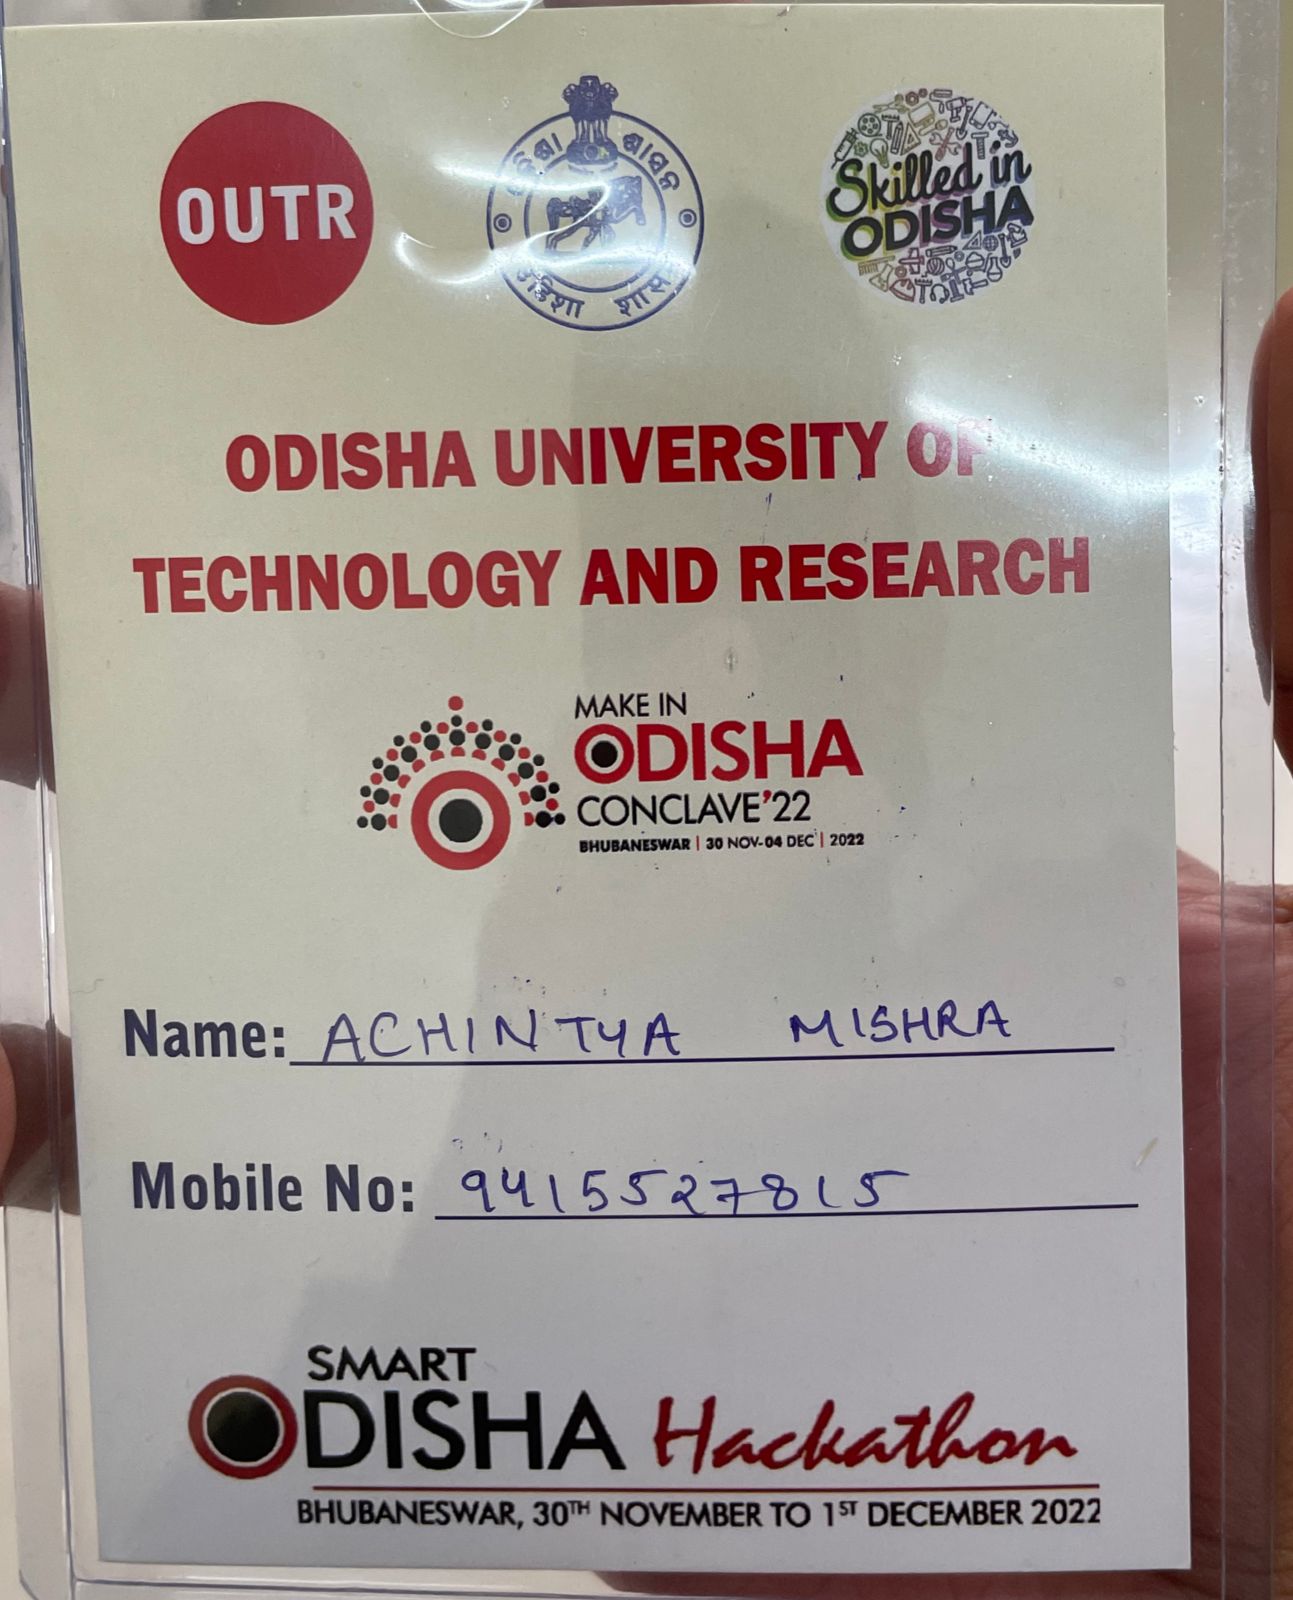 OUTR
ଶାସନ
ओडिशा शास
Skilled in
ODISHA
ODISHA UNIVERSITY OF
TECHNOLOGY AND RESEARCH
MAKE IN
ODISHA
CONCLAVE'22
BHUBANESWAR | 30 NOV-04 DEC | 2022
Name: ACHINTYA MISHRA
Mobile No: 9415527815
SMART
ODISHA Hackathon
BHUBANESWAR, 30TH NOVEMBER TO 1ST DECEMBER 2022